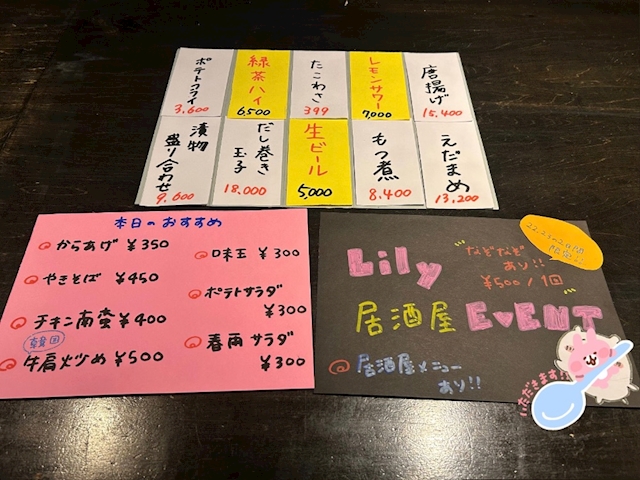 ポテトフライ
3,600
緑茶ハイ
6500
たこわさ
399
レモンサワー
7,000
唐揚げ
15,400
漬物
盛り合わせ
9,600
だし巻き
玉子
18,000
生ビール
5,000
もつ煮
8,400
えだまめ
13,200
本日のおすすめ
からあげ ¥350
やきそば ¥450
チキン南蛮 ¥400
韓国
牛肩火炒め ¥500
味玉 ¥300
ポテトサラダ
¥300
春雨サラダ
¥300
Lily
なぞなぞ
あり!!
¥500/1回
居酒屋 EVENT
居酒屋メニュー
あり!!
いただきます!